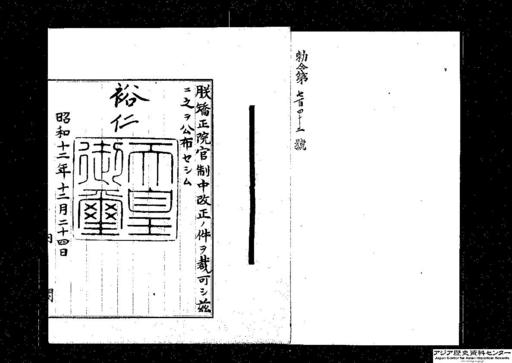 勅令第七百四十三號
朕矯正院官制中改正ノ件ヲ裁可シ茲
ニ之ヲ公布セシム
裕仁
天皇
御璽
昭和十二年十二月二十四日
内閣
アジア歴史資料センター
Japan Center for Asian Historical Records